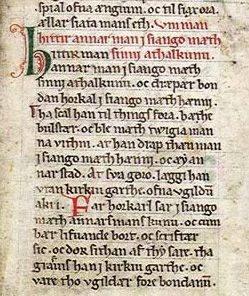 spial ofna ængum. oc til
allar siata mans eth. Um man
hittir annar man i siango mæth
Hittir man sinni athalkunu.
annar man i siango mæth
sinni athalkunu. oc dræpær bon
dan horkal i siango mæth hænni.
Tha scal han til things fora. bæthe
bulstær. oc bleo mæth twigia man
na vitni. at han drap than man
i siango mæth hænni. oc æi i an
nar stað. Ær sva goro. læggi han
vtan kirkiu garthe. ofna vgildū
akri. Far horkarl sar i siango
mæth annars mans kunu. oc cum
bær lifuande bort. oc scriftær
sic. oc dor sithan af thy sare. tha
grafs han i kirkiu garthe. oc
vare tho vgildær fore bondanū.